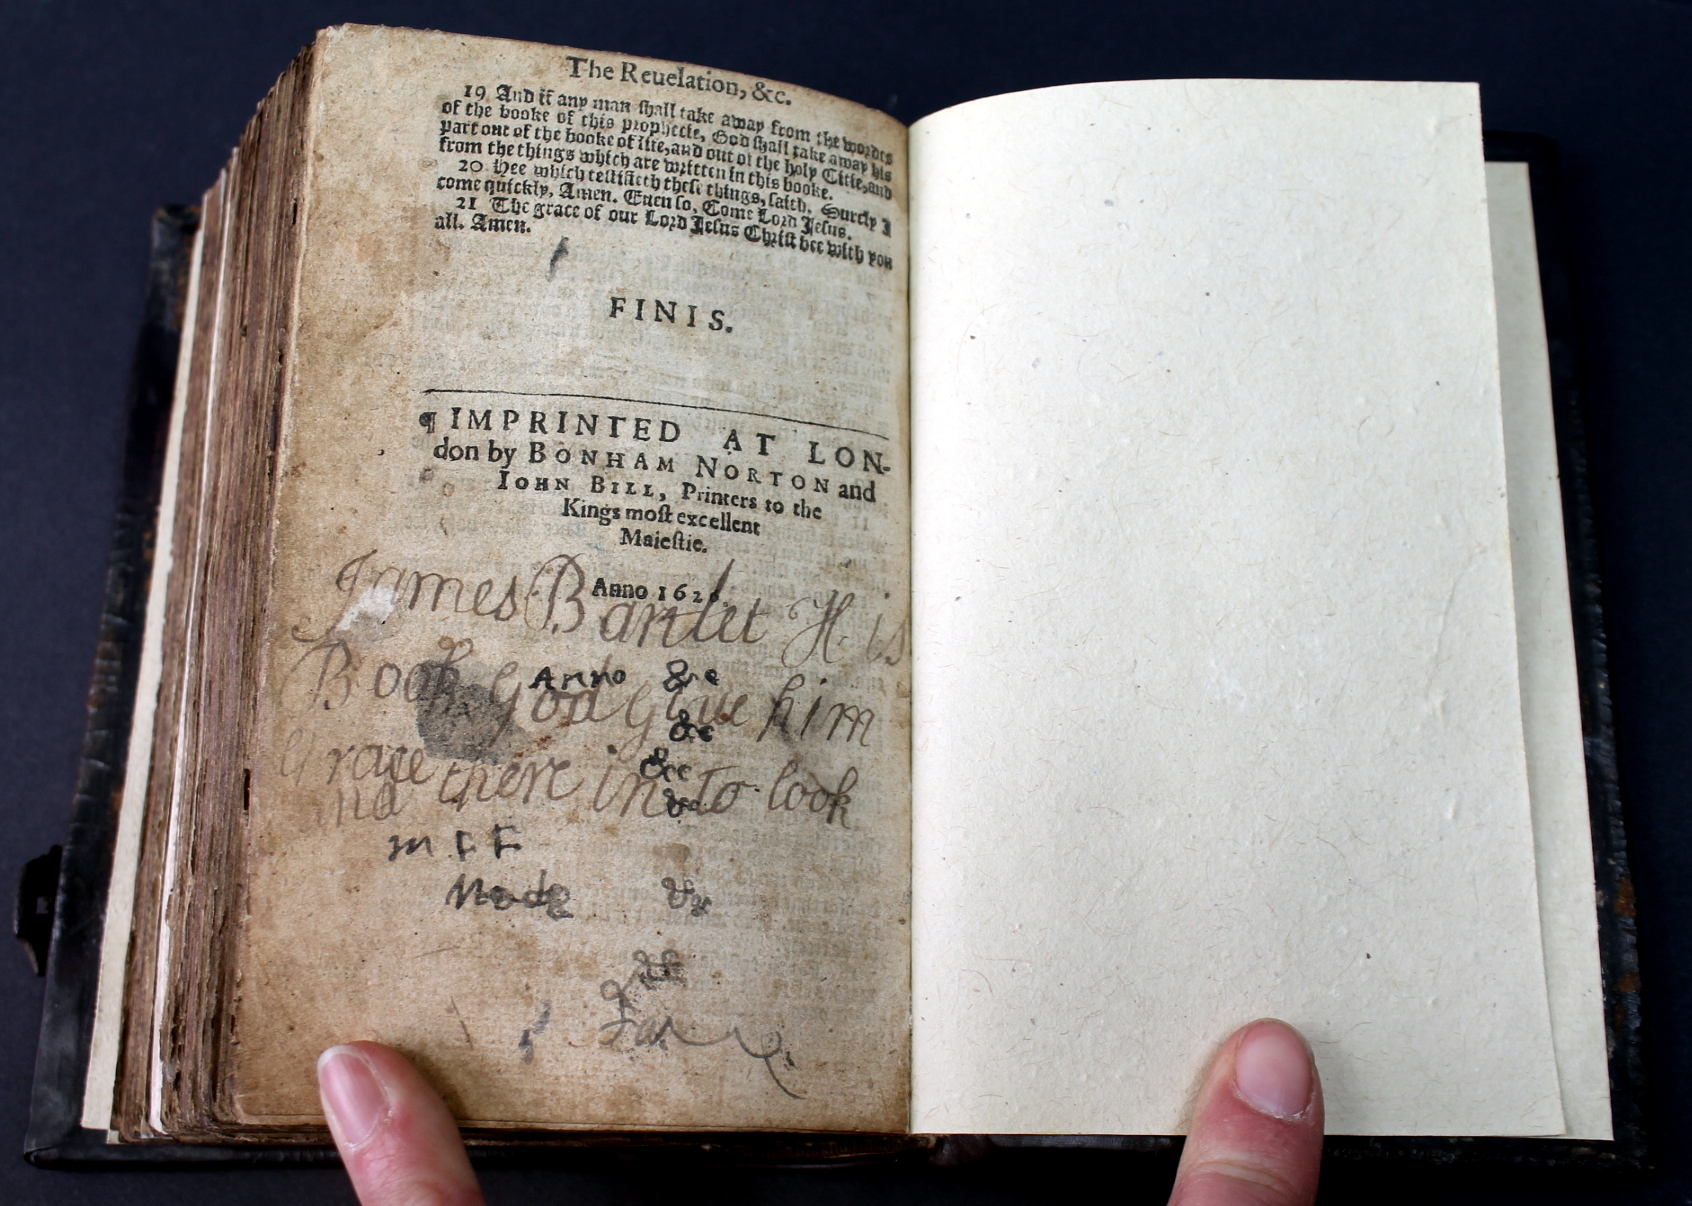 The Reuelation, &c.
19 And if any man shall take away from the wordes
of the booke of this prophecie, God shall take away his
part out of the booke of life, and out of the holy Citie, and
from the things which are written in this booke.
20 Hee which testifieth these things, saith, Surely I
come quickly, Amen. Euen so, Come Lord Jesus.
21 The grace of our Lord Jesus Christ bee with you
all. Amen.
FINIS.
¶ IMPRINTED AT LON-
don by BONHAM NORTON and
IOHN BILL, Printers to the
Kings most excellent
Maiestie.
Anno 162
James Bartlet His
Book God Give him
Grace there in To look
Anno &c
&c
&c
&c